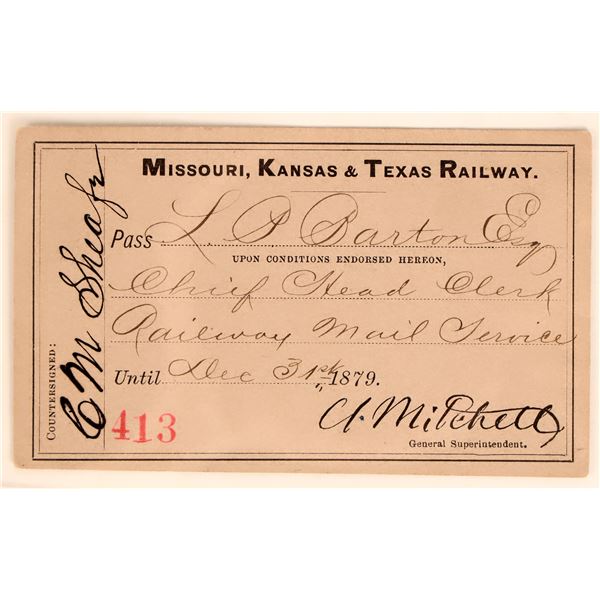 MISSOURI, KANSAS & TEXAS RAILWAY.
Pass L. P. Barton Esq
UPON CONDITIONS ENDORSED HEREON,
Chief Head Clerk
Railway Mail Service
Until Dec 31st 1879.
413
A. Mitchell
General Superintendent.
COUNTERSIGNED:
C M Shea Jr